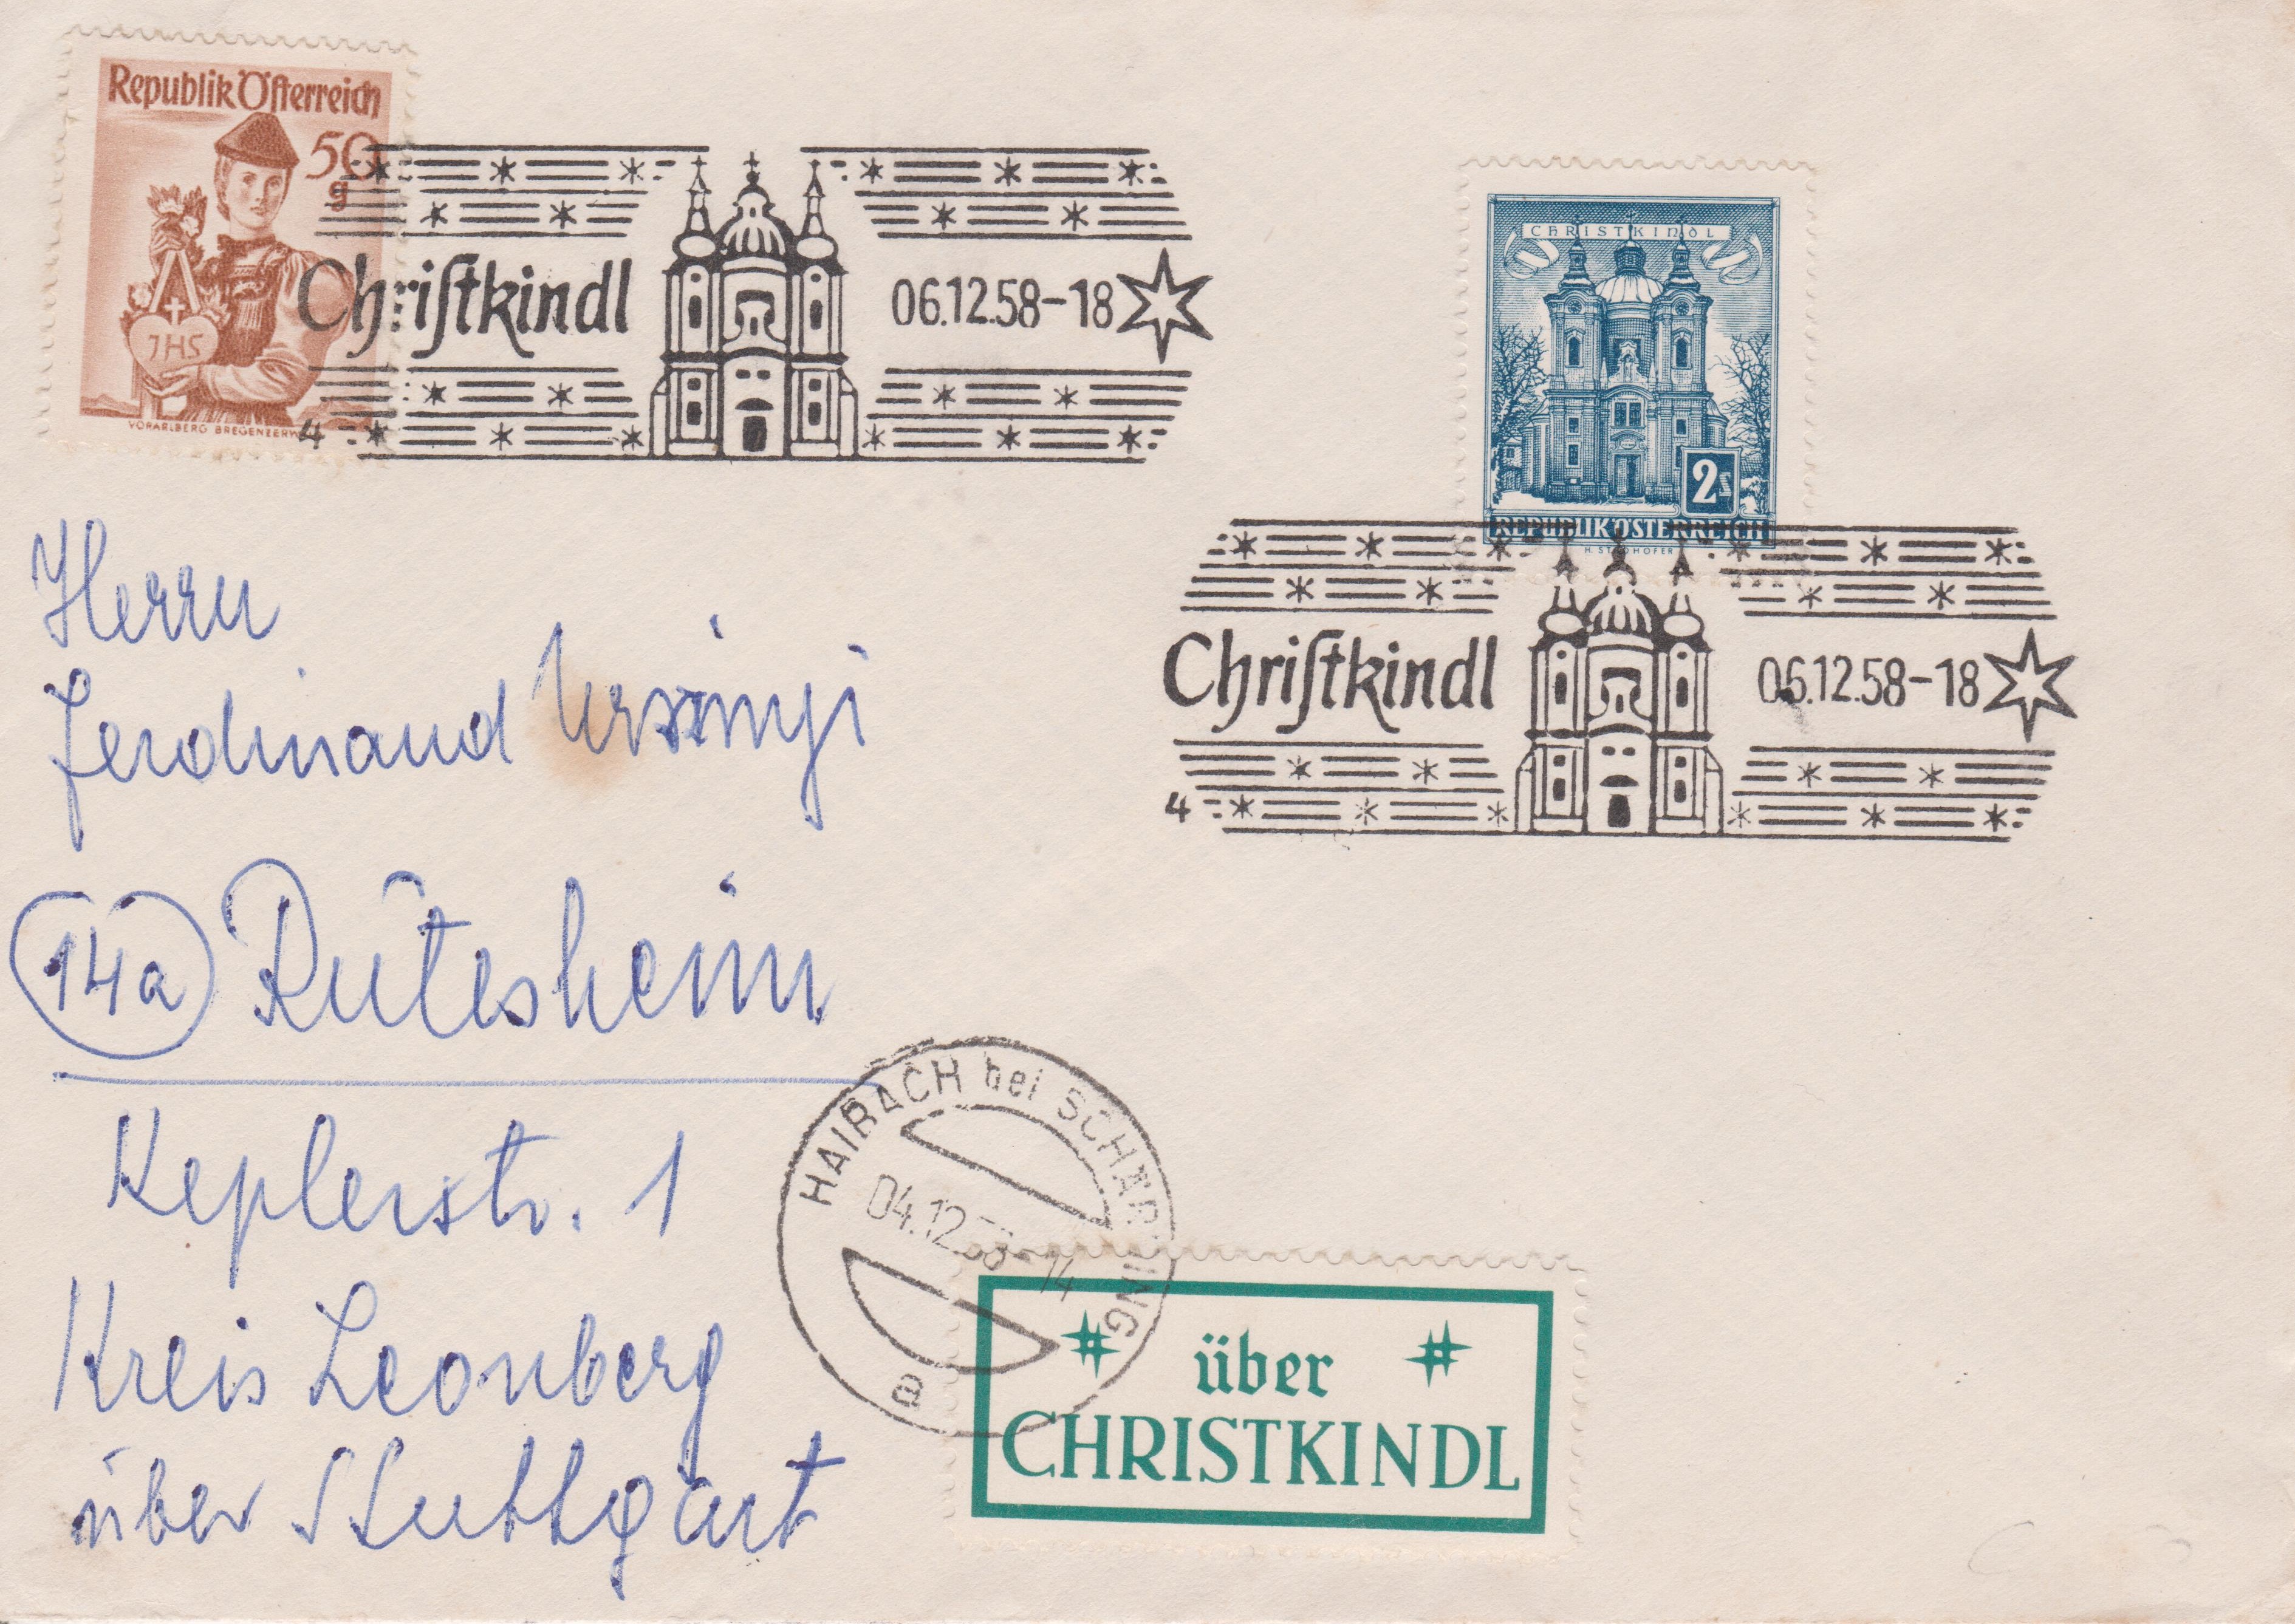 Republik Österreich
50
g
JHS
VORARLBERG BREGENZERW
Christkindl
06.12.58-18
4
CHRISTKINDL
2s
REPUBLIK ÖSTERREICH
H. STADHOFER
Christkindl
06.12.58-18
4
Herrn
Ferdinand
14a Rutesheim
Keplerstr. 1
Kreis Leonberg
über Stuttgart
HAIBACH bei SCHÄRDING
04.12.58-14
a
über
CHRISTKINDL